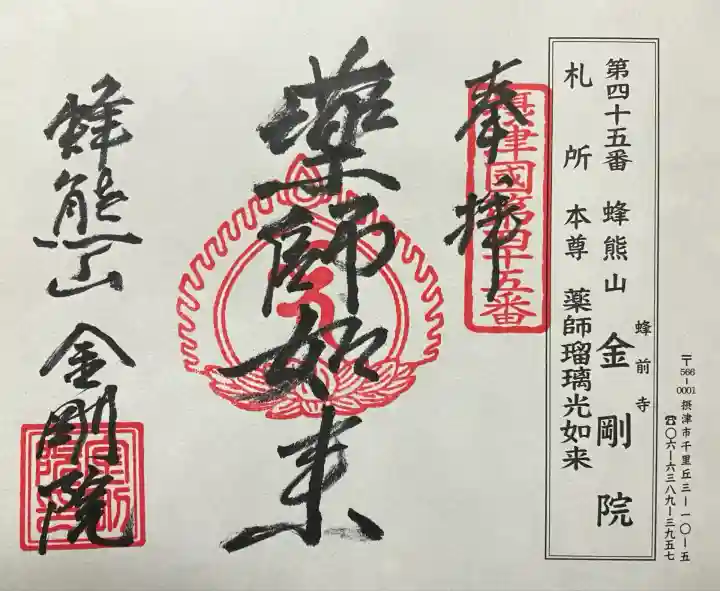 〒566-0001 摂津市千里丘三ー一〇ー五
☎〇六ー六三八九ー三九五七
蜂前寺
第四十五番 蜂熊山 金剛院
札所本尊 薬師瑠璃光如来
奉拝
摂津國第四十五番
薬師如来
蜂熊山 金剛院